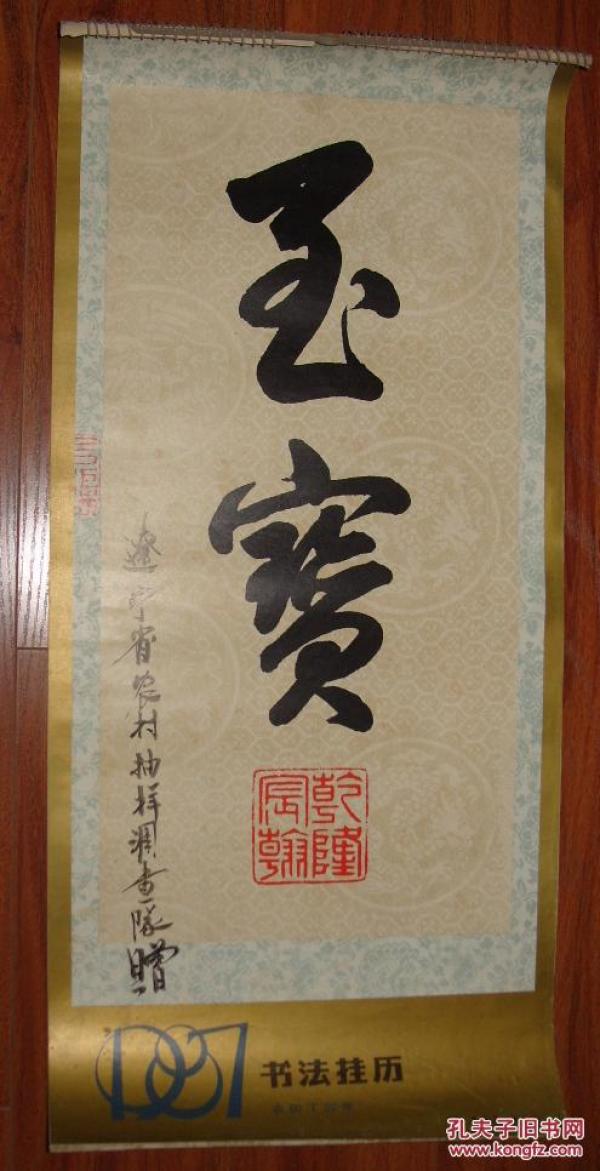 至寶
乾隆
宸翰
遼宁省农村抽样調查隊贈
1987
书法挂历
孔夫子旧书网
www.kongfz.com